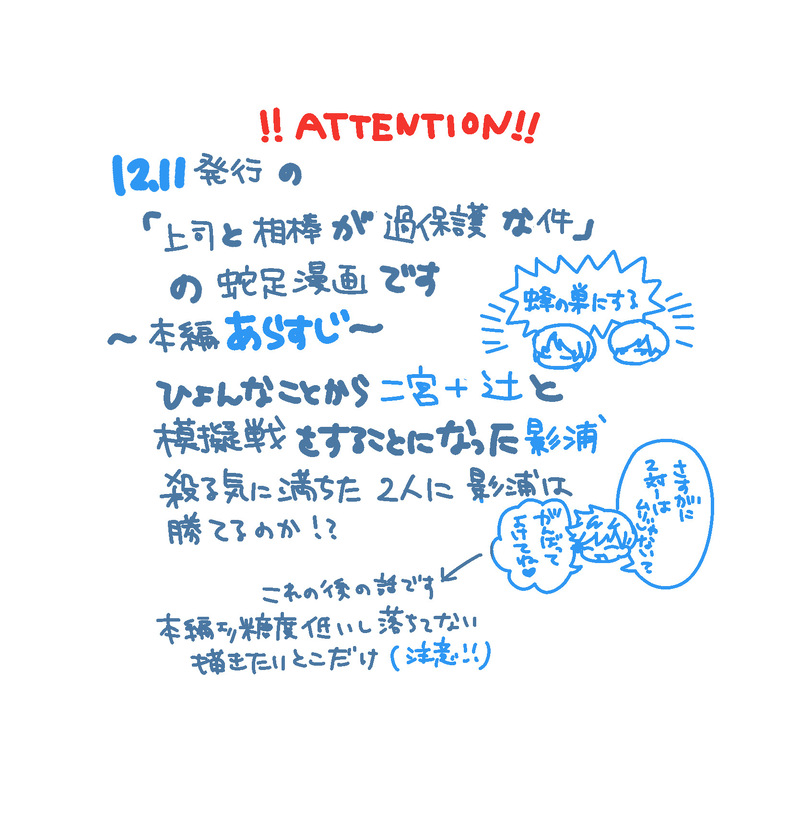 !! ATTENTION!!
12.11 発行の
「上司と相棒が過保護な件」
の蛇足漫画です
～本編あらすじ～
蜂の巣にする
ひょんなことから二宮+辻と
模擬戦をすることになった影浦
殺る気に満ちた2人に影浦は
勝てるのか!?
さすがに
2対1は
がんばって
よけてね♡
これの後の話です
本編より糖度低いし落ちてない
描きたいとこだけ(注意!!)